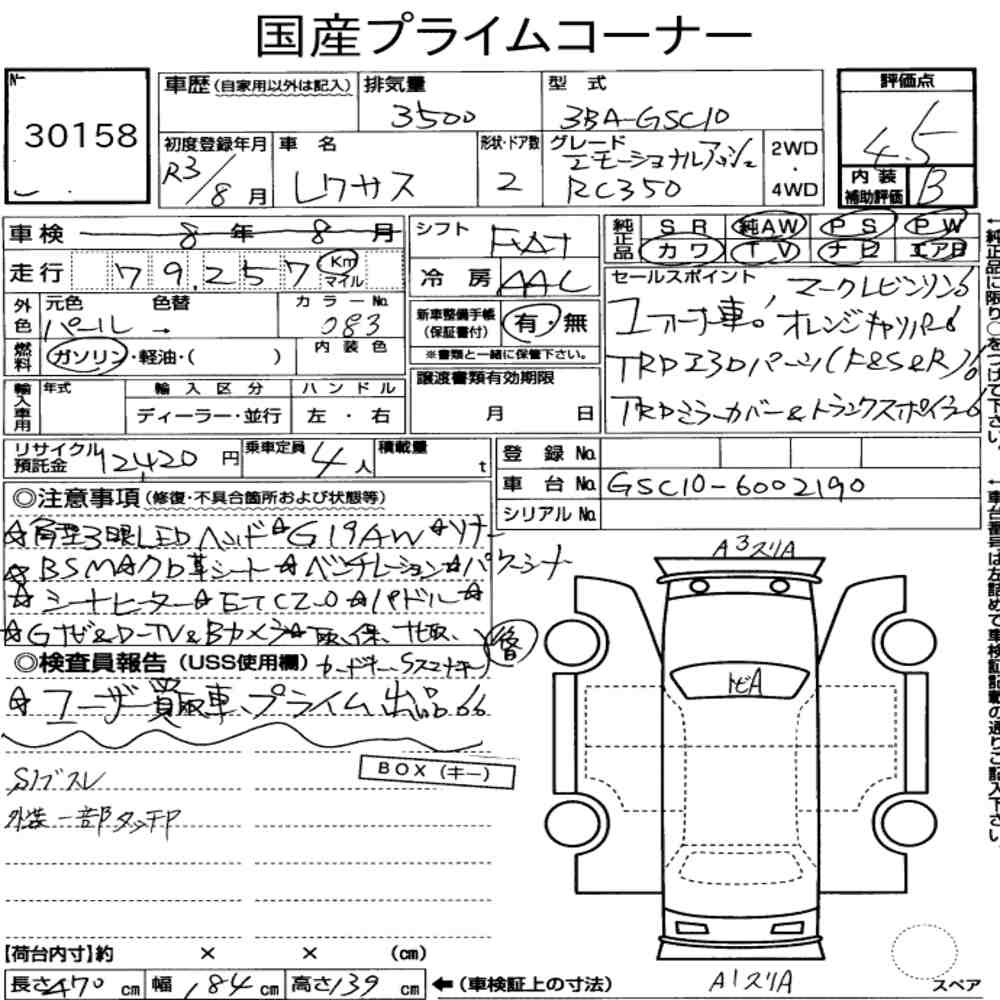 国産プライムコーナー
№
30158
車歴(自家用以外は記入)
排気量
3500
型式
3BA-GSC10
評価点
4.5
初度登録年月
R3/8月
車名
レクサス
形状・ドア数
2
グレード
エモーショナルアッシュ
RC350
2WD
・
4WD
内装
補助評価
B
車検 8年 8月
走行 79,257 Km
マイル
シフト
FAT
冷房
AAC
純正品
SR 純AW PS PW
カワ TV ナビ エアB
←純正品に限り○をつけて下さい。
外色
元色 色替
パール →
カラーNo.
083
燃料
ガソリン・軽油・( )
内装色
新車整備手帳
(保証書付)
有・無
※書類と一緒に保管下さい。
セールスポイント
ユーザー車!! マークレビンソン!!
オレンジキャリパー!!
TRDエアロパーツ(F&S&R)!!
TRDミラーカバー&トランクスポイラー!!
輸入車用
年式
輸入区分
ディーラー・並行
ハンドル
左・右
譲渡書類有効期限
月 日
リサイクル
預託金
12,420円
乗車定員
4人
積載量
t
登録No.
車台No. GSC10-6002190
シリアルNo.
←車台番号は左詰めで車検証記載の通りご記入下さい。
◎注意事項(修復・不具合箇所および状態等)
☆角型3眼LEDヘッド☆G19AW☆ソナー
☆BSM☆クロ革シート☆ベンチレーション☆パワーシート
☆シートヒーター☆ETC2.0☆パドル☆
☆Gナビ&D-TV&Bカメラ☆取、保、
後
◎検査員報告(USS使用欄)
カードキー、Sスマートキー
☆ユーザー買取車、プライム出品!!
BOX(キー)
外装一部タッチP
A3スリA
トビA
A1スリA
【荷台内寸】約 × × (cm)
長さ470cm 幅184cm 高さ139cm
←(車検証上の寸法)
スペア